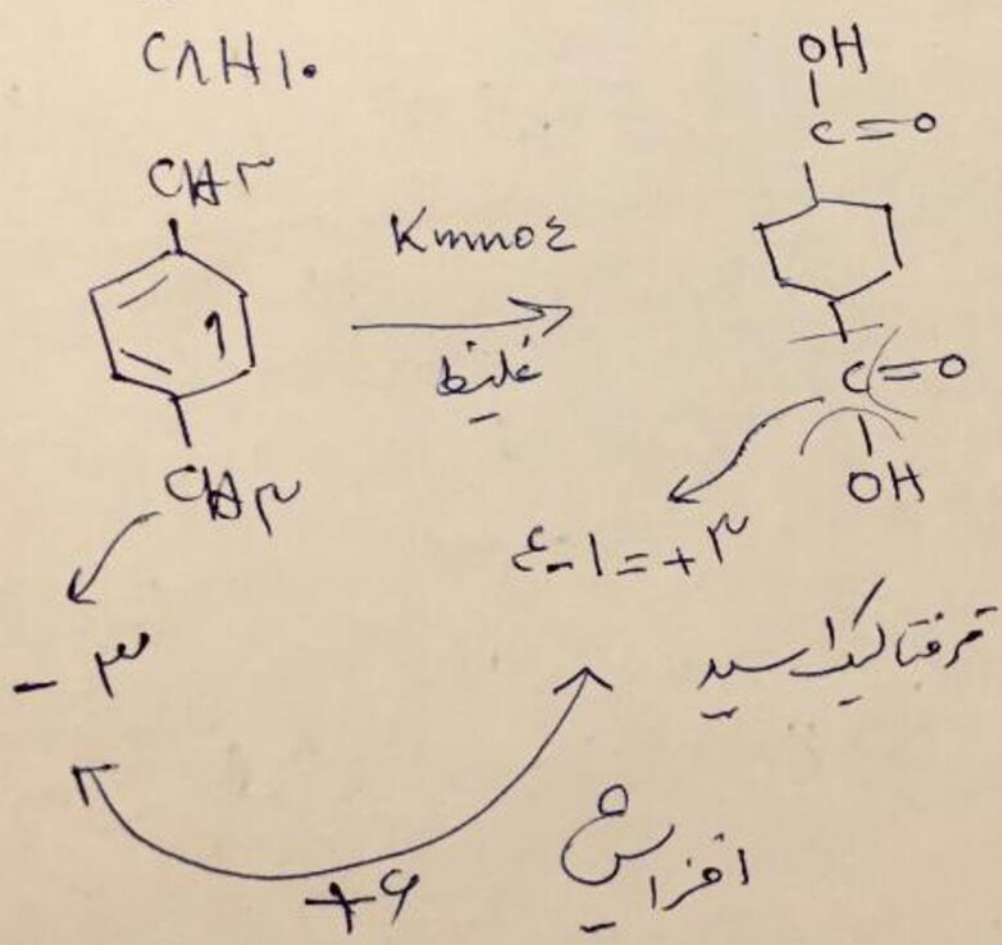 C۸H۱۰
CH۳
CH۳
-۳
Kmno۴
غلیظ
OH
C=O
C=O
OH
۴-۱=+۳
ترفتالیک اسید
+۶
افزایش